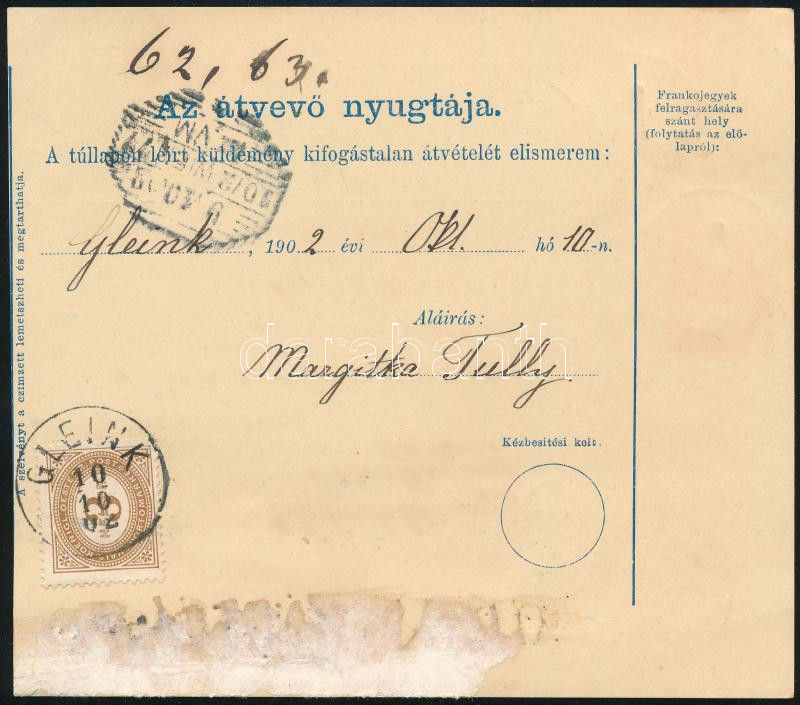 62, 63.
Az átvevő nyugtája.
A túllapon leirt küldemény kifogástalan átvételét elismerem:
Gleink, 1902 évi Okt. hó 10-n.
Aláirás:
Margitka Tully
Kézbesitési kelt.
Frankojegyek
felragasztására
szánt hely
(folytatás az elő-
lapról):
A szelvényt a czimzett lemetszheti és megtarthatja.
GLEINK
10
10
02
3
darabanth